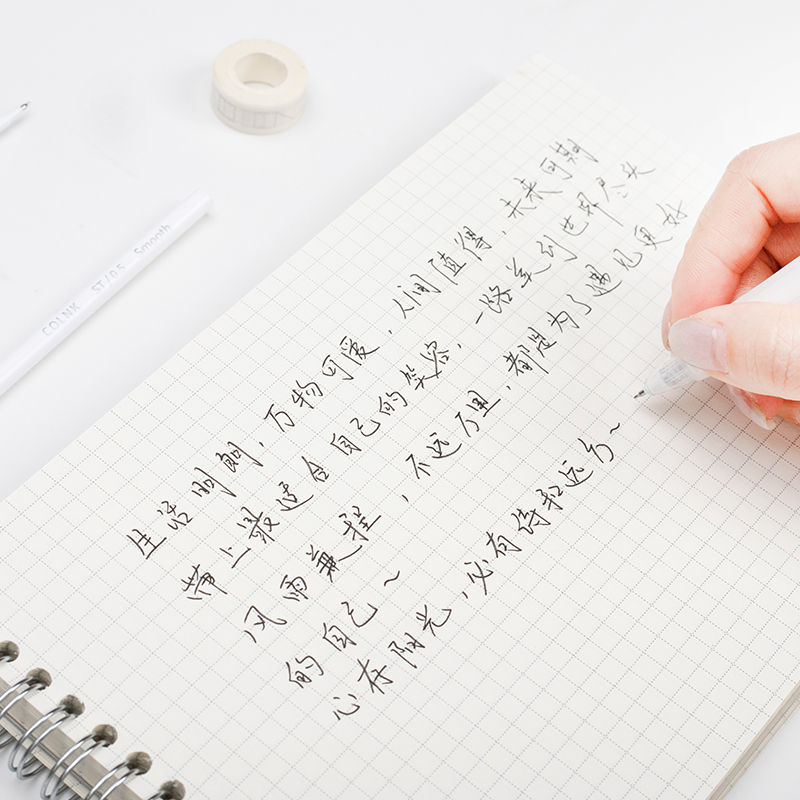 COLNK ST/0.5 Smooth
生活明朗，万物可爱，人间值得，未来可期
带上最适合自己的笑容，一路美到世界尽头
风雨兼程，不远万里，都是为了遇见更好
的自己~
心存阳光，必有诗和远方~